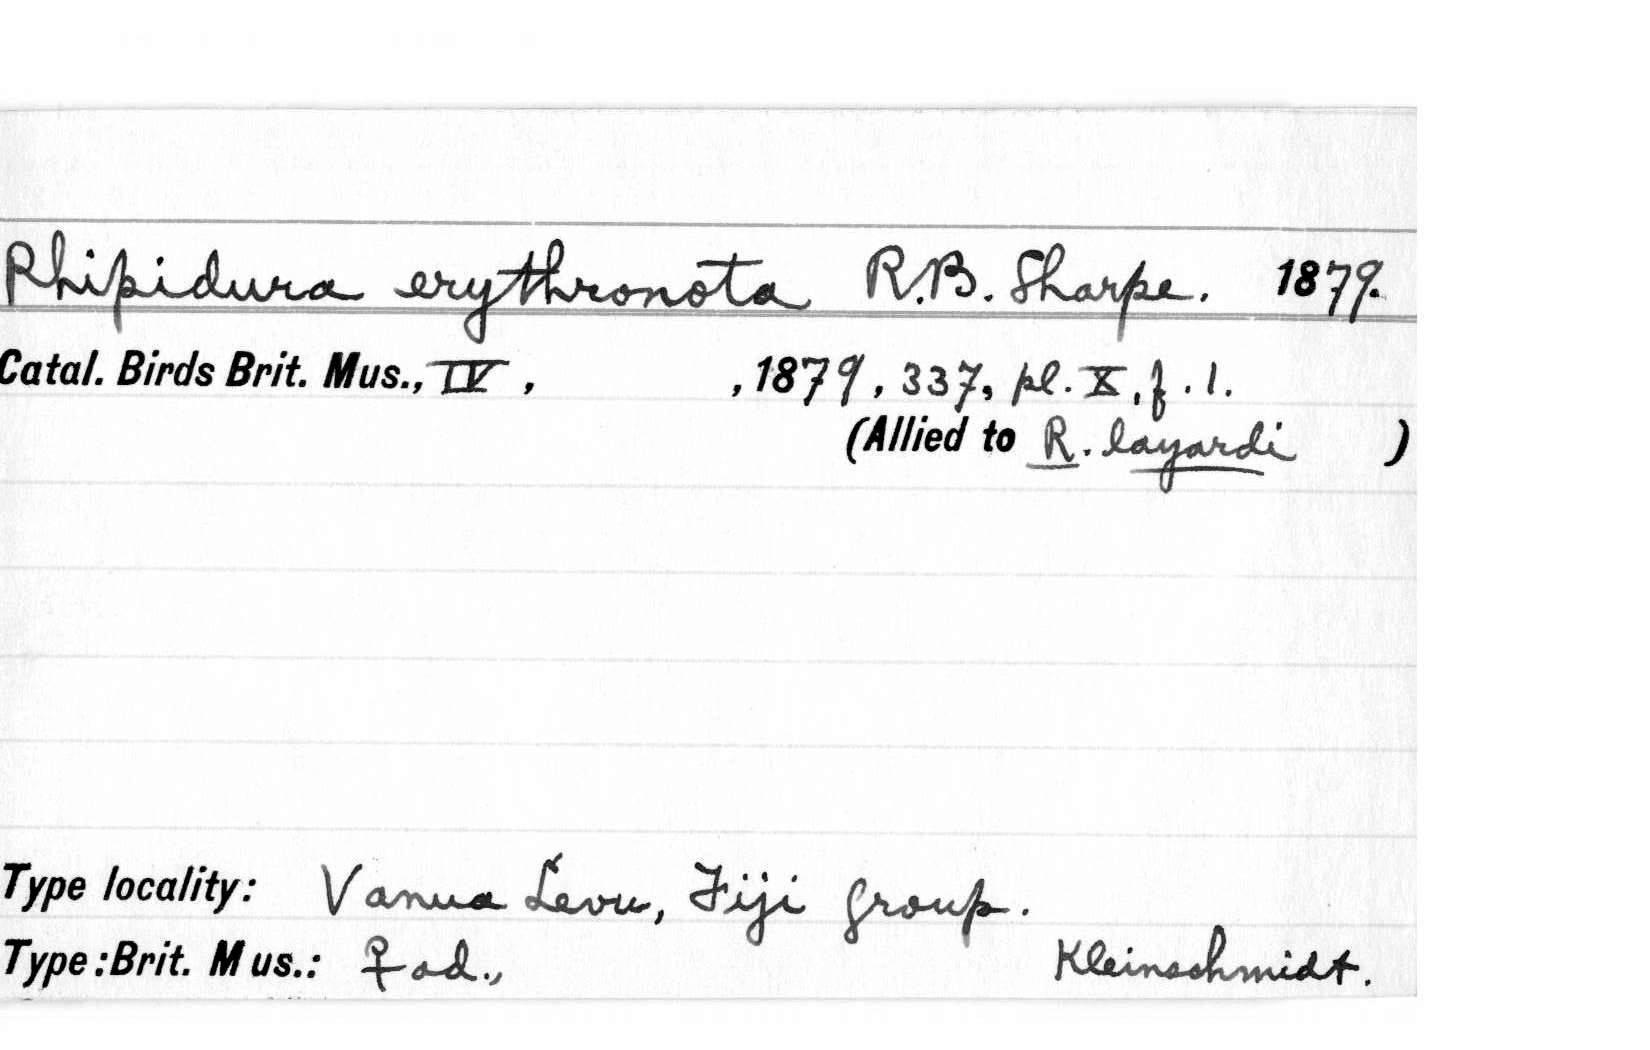 Rhipidura erythronota R.B. Sharpe. 1879.
Catal. Birds Brit. Mus., IV , , 1879, 337, pl. X, f. 1.
(Allied to R. layardi )
Type locality: Vanua Levu, Fiji group.
Type: Brit. Mus.: ♀ ad., Kleinschmidt.